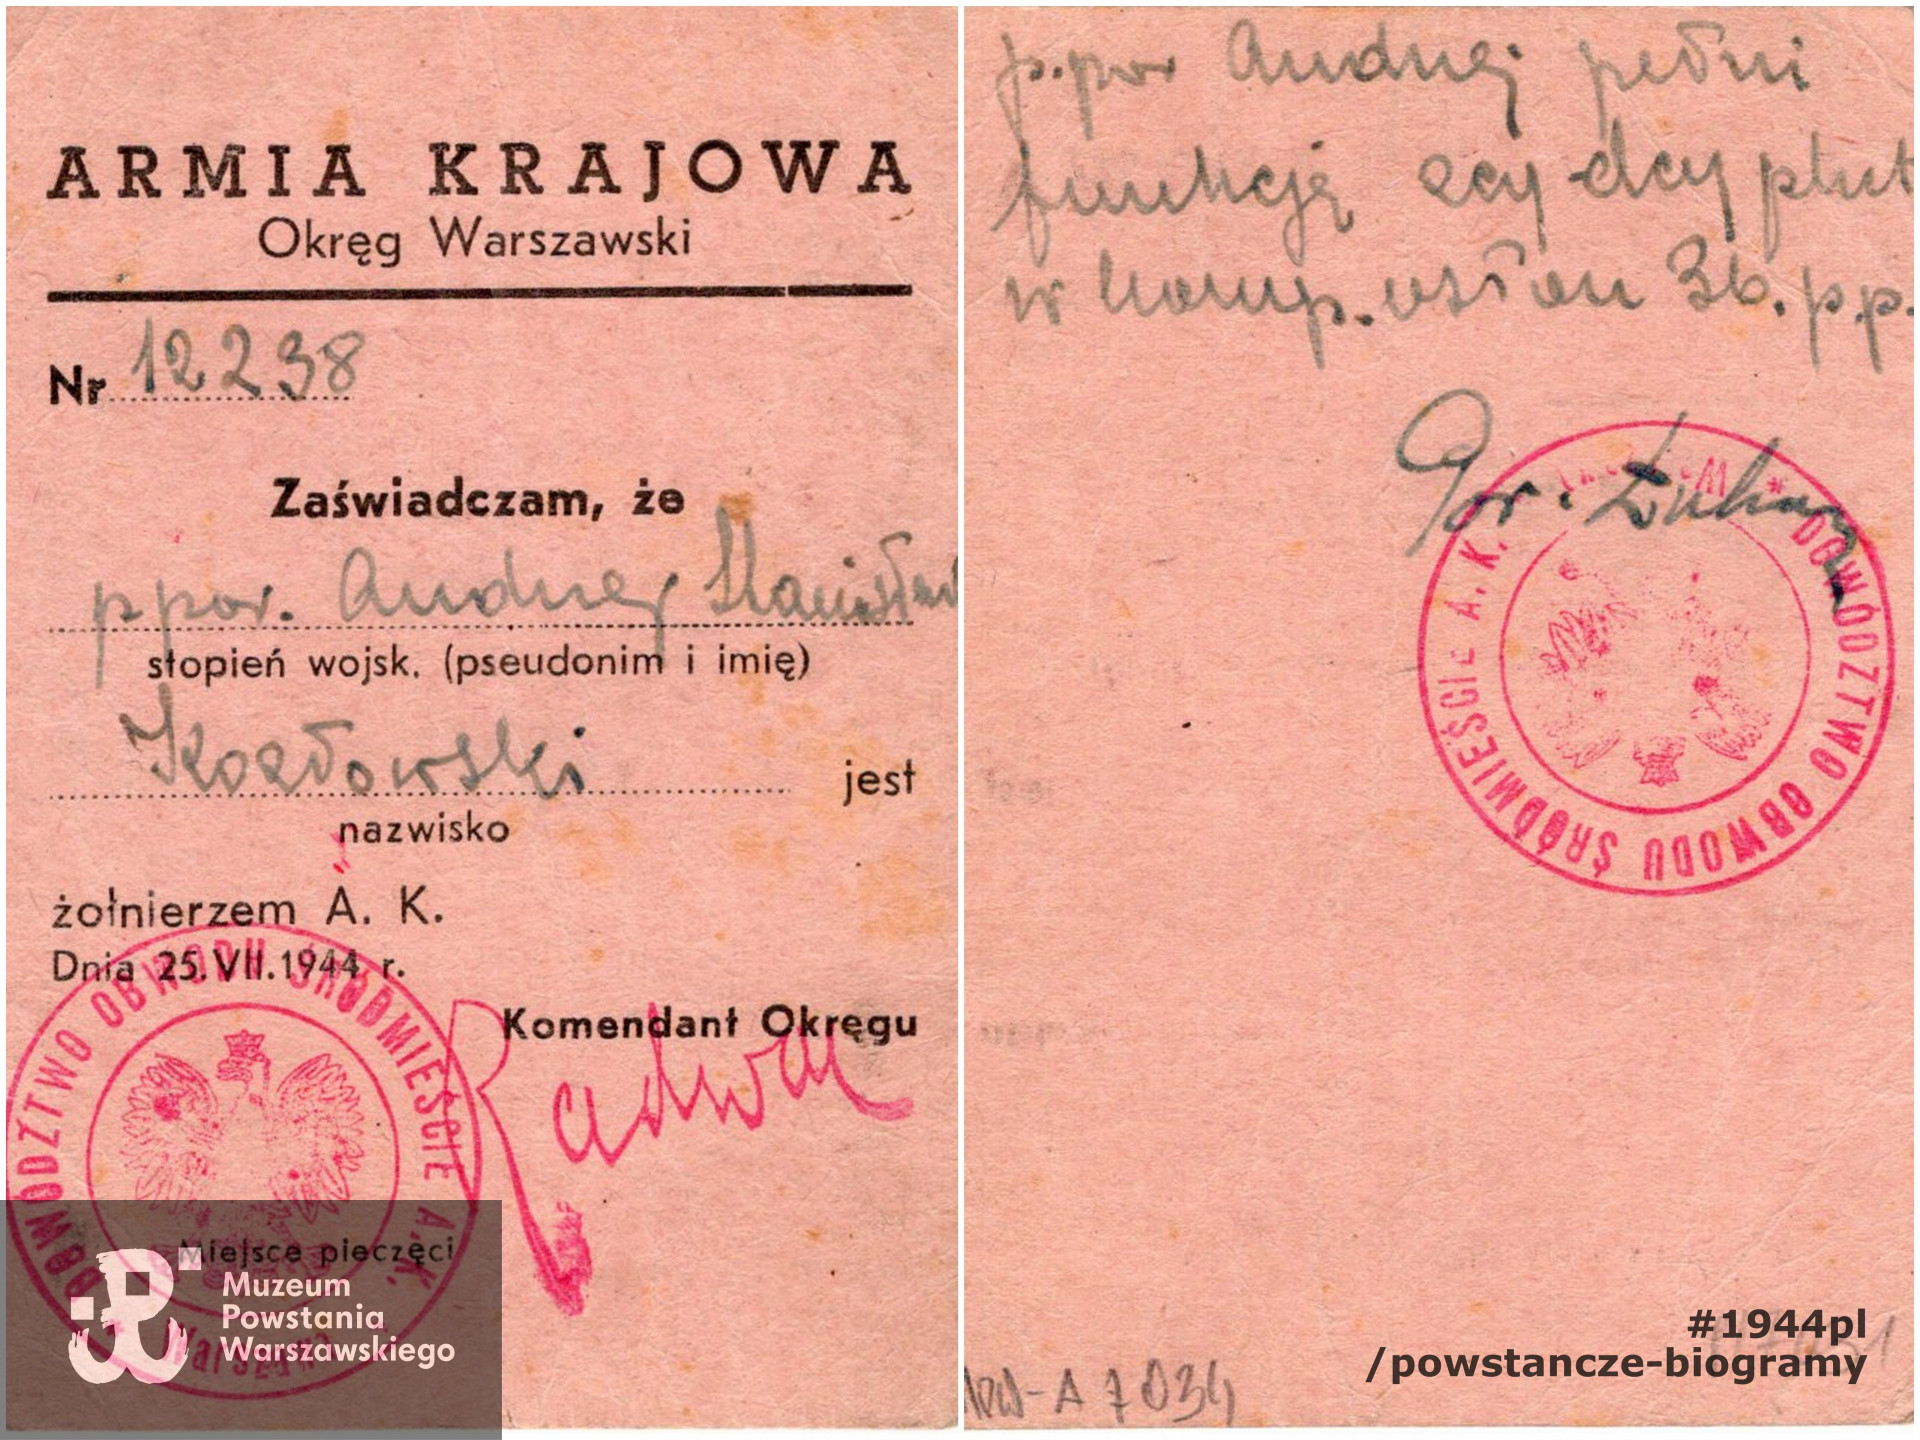 ARMIA KRAJOWA
Okręg Warszawski
Nr 12238
Zaświadczam, że
ppor. Andrzej Stanisław
stopień wojsk. (pseudonim i imię)
Kozłowski jest
nazwisko
żołnierzem A. K.
Dnia 25.VII.1944 r.
Komendant Okręgu
Radwan
Miejsce pieczęci
DOWÓDZTWO OBWODU ŚRÓDMIEŚCIE A.K.
Warszawa
Muzeum
Powstania
Warszawskiego
p.por Andrzej pełni
funkcję zcy dcy plut
w komp. osłon 36. p.p.
por.
DOWÓDZTWO OBWODU ŚRÓDMIEŚCIE A. K.
A 7034
#1944pl
/powstancze-biogramy